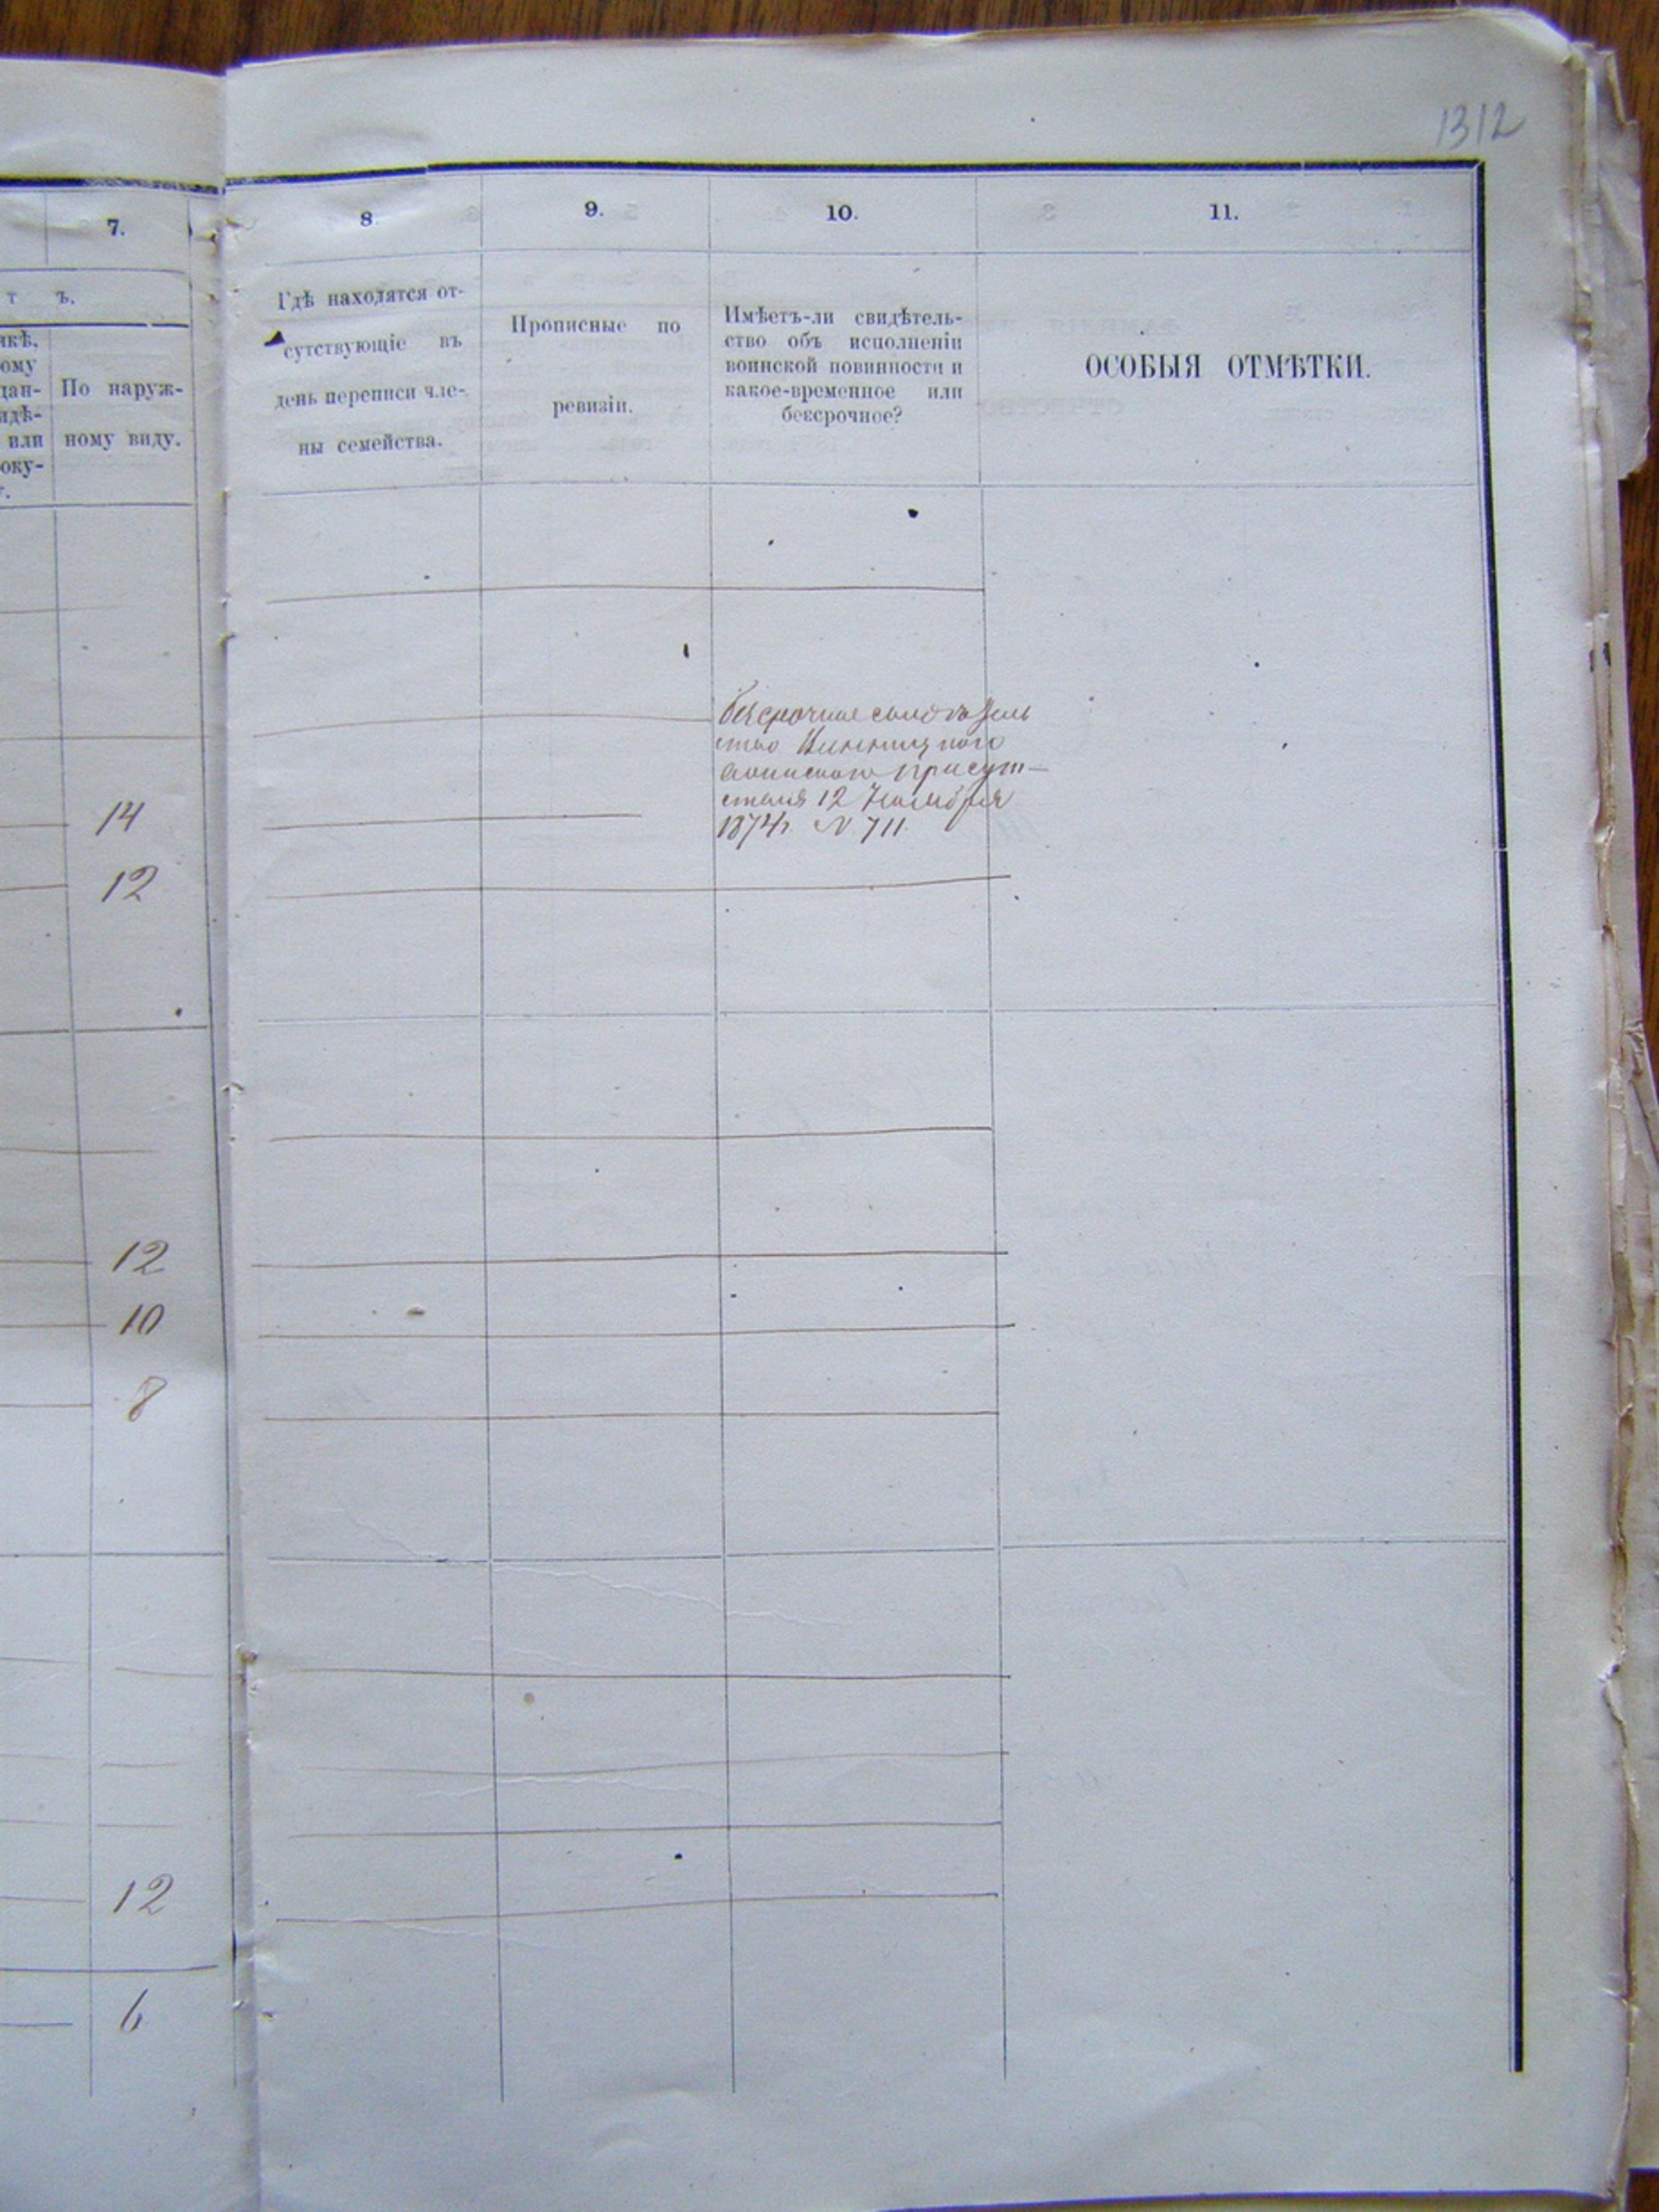 1312
7.
8
9.
10.
11.
т ъ.
По наруж-
ному виду.
Гдѣ находятся от-
сутствующіе въ
день переписи чле-
ны семейства.
Прописные по
ревизіи.
Имѣетъ-ли свидѣтель-
ство объ исполненіи
воинской повинности и
какое-временное или
безсрочное?
ОСОБЫЯ ОТМѢТКИ.
безсрочное свидѣтель
ство Винницкого
воинского присут-
ствия 12 Ноября
1874г. N 711.
14
12
12
10
8
12
6